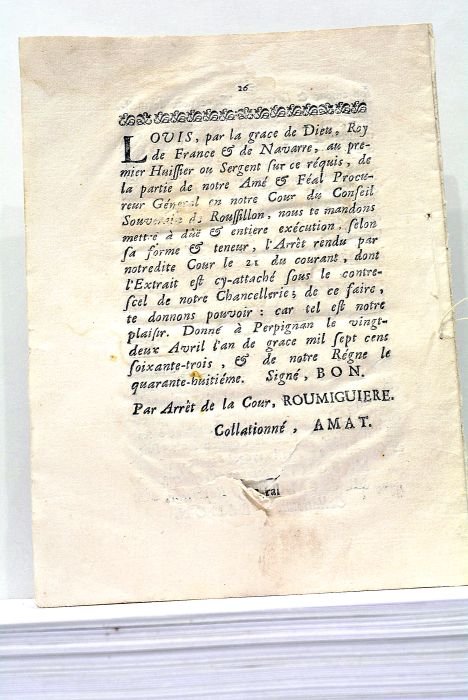 26
LOUIS, par la grace de Dieu, Roy
de France & de Navarre, au pre-
mier Huissier ou Sergent sur ce réquis, de
la partie de notre Amé & Féal Procu-
reur Général en notre Cour du Conseil
Souverain de Roussillon, nous te mandons
mettre à dûë & entiere exécution, selon
sa forme & teneur, l'Arrêt rendu par
notredite Cour le 21 du courant, dont
l'Extrait est cy-attaché sous le contre-
scel de notre Chancellerie; de ce faire,
te donnons pouvoir: car tel est notre
plaisir. Donné à Perpignan le vingt-
deux Avril l'an de grace mil sept cens
soixante-trois, & de notre Régne le
quarante-huitiéme. Signé, BON.
Par Arrêt de la Cour, ROUMIGUIERE.
Collationné, AMAT.